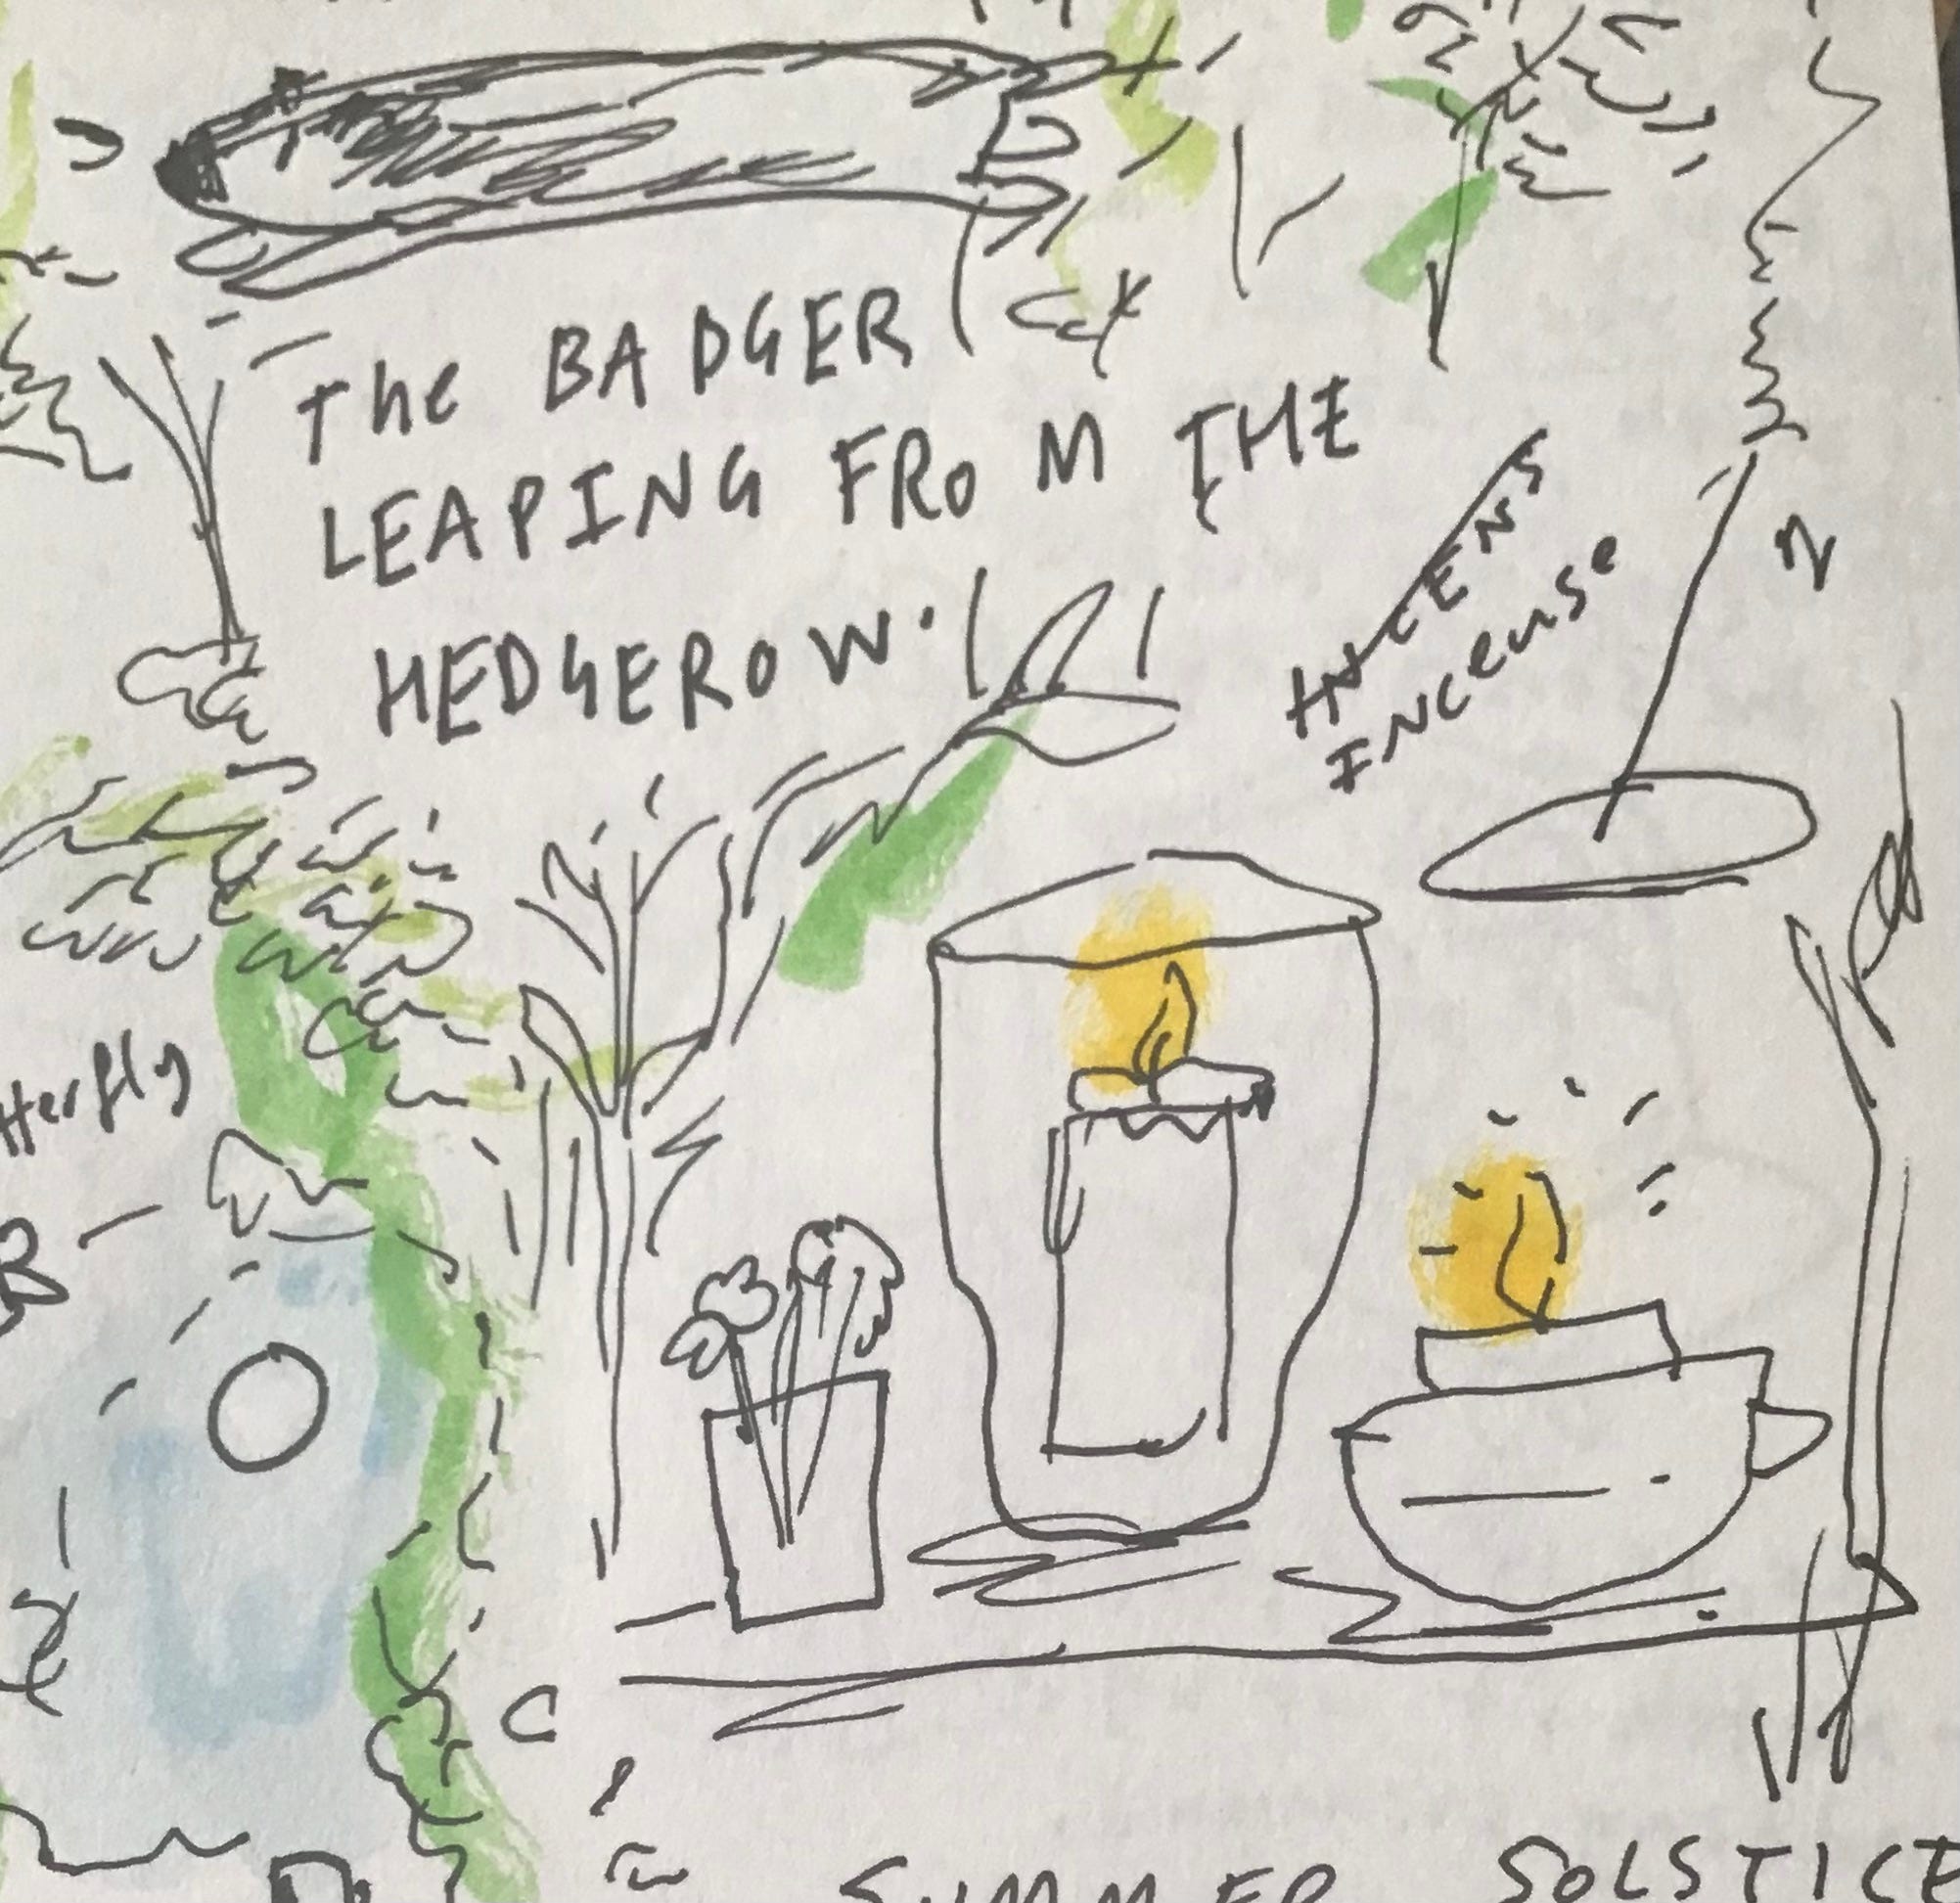 The BADGER
LEAPING FROM THE
HEDGEROW.
INCENS
INCENSe
tterfly
SUMMER SOLSTICE